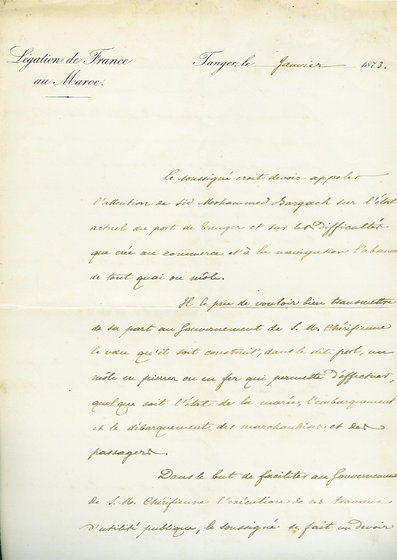 Légation de France
au Maroc.
Tanger, le Janvier 1873.
Le soussigné croit devoir appeler
l'attention de Sid Mohammed Bargach sur l'état
actuel du port de Tanger et sur les difficultés
que crée au commerce et à la navigation l'absence
de tout quai ou môle.
Il le prie de vouloir bien transmettre
de sa part au Gouvernement de S. M. Chérifienne
le vœu qu'il soit construit, dans le dit port, un
môle en pierres ou en fer qui permette d'effectuer,
quelque soit l'état de la marée, l'embarquement
et le débarquement des marchandises et des
passagers.
Dans le but de faciliter au Gouvernement
de S. M. Chérifienne l'exécution de ces travaux
d'utilité publique, le soussigné se fait un devoir